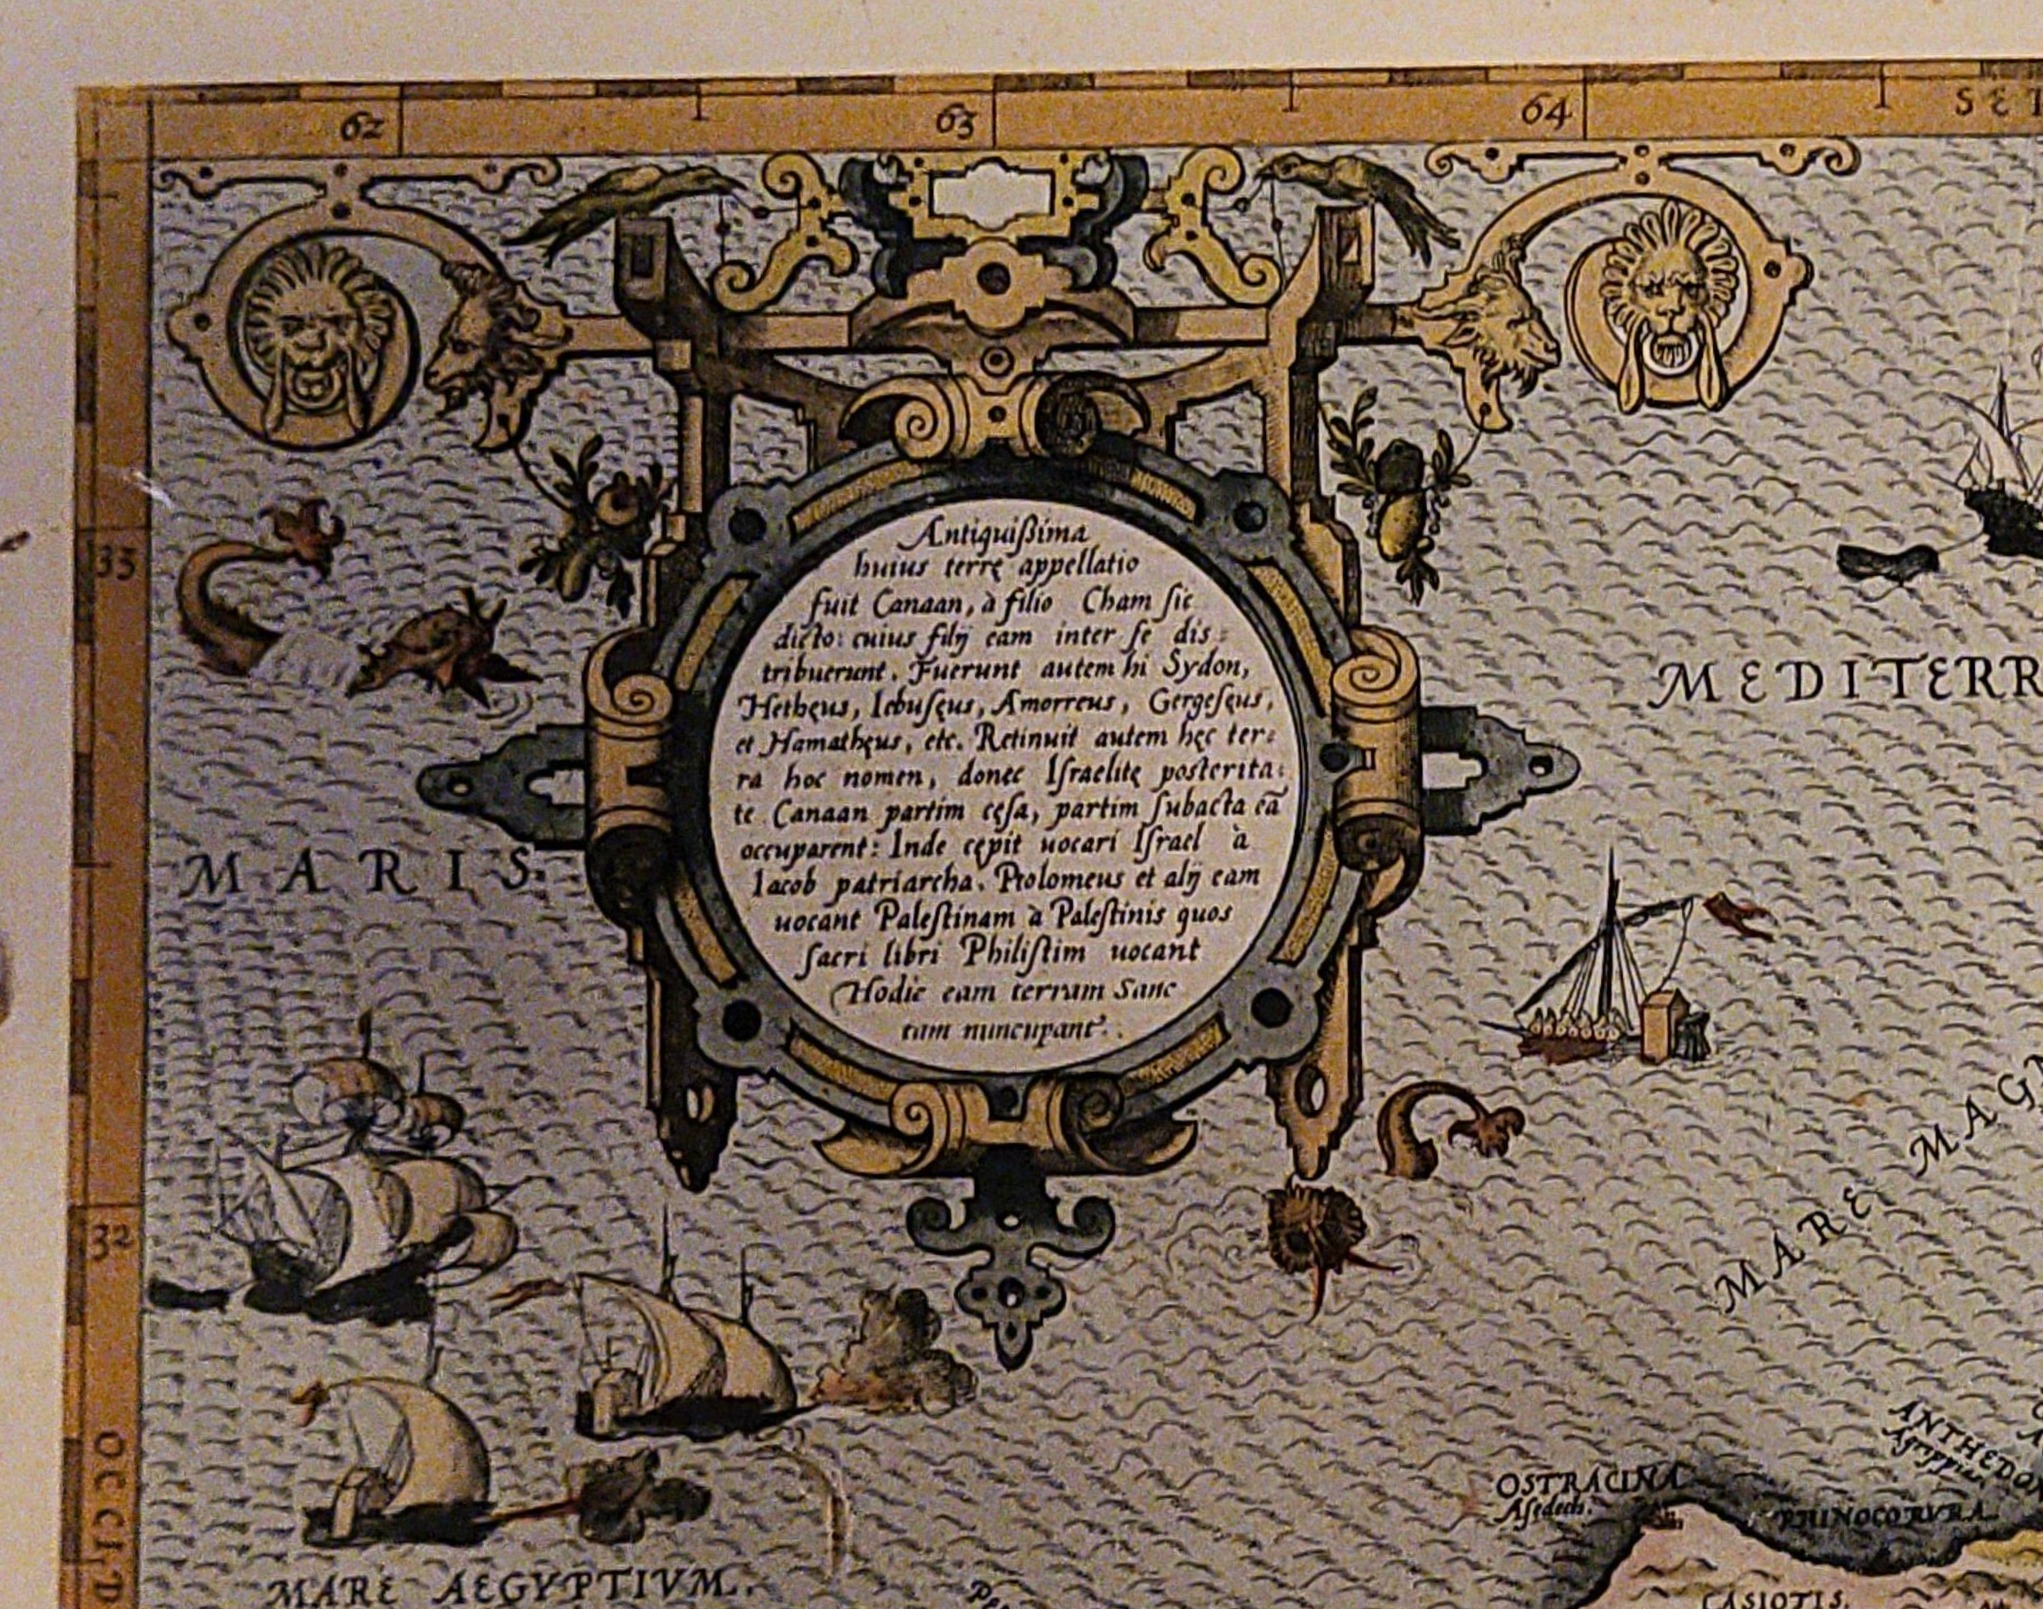 62
63
64
SE
33
Antiquißima
huius terrę appellatio
fuit Canaan, à filio Cham ſic
dicto: cuius filij eam inter ſe dis:
tribuerunt. Fuerunt autem hi Sydon,
Hethęus, Iebuſęus, Amorreus, Gergeſęus,
et Hamathęus, etc. Retinuit autem hęc ter:
ra hoc nomen, donec Iſraelitę posterita:
te Canaan partim cęſa, partim ſubacta eā
occuparent: Inde cępit uocari Iſrael à
Iacob patriarcha. Ptolomeus et alij eam
uocant Paleſtinam à Paleſtinis quos
ſacri libri Philiſtim uocant
Hodie eam terram Sanc
tam nuncupant.
MEDITERR
MARIS.
MARE MAG
32
OCCID
ANTHEDO
OSTRACINA
Aſedech.
RHINOCORVRA.
MARE AEGYPTIVM.
CASIOTIS.